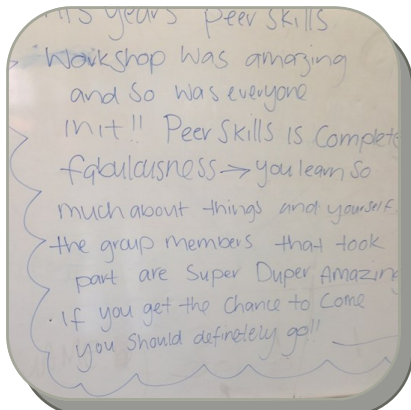 This years Peer Skills
Workshop was amazing
and so was everyone
in it!! Peer Skills is Complete
fabulousness → you learn so
much about things and yourself.
the group members that took
part are Super Duper Amazing
. If you get the chance to come
you should definetely go!!